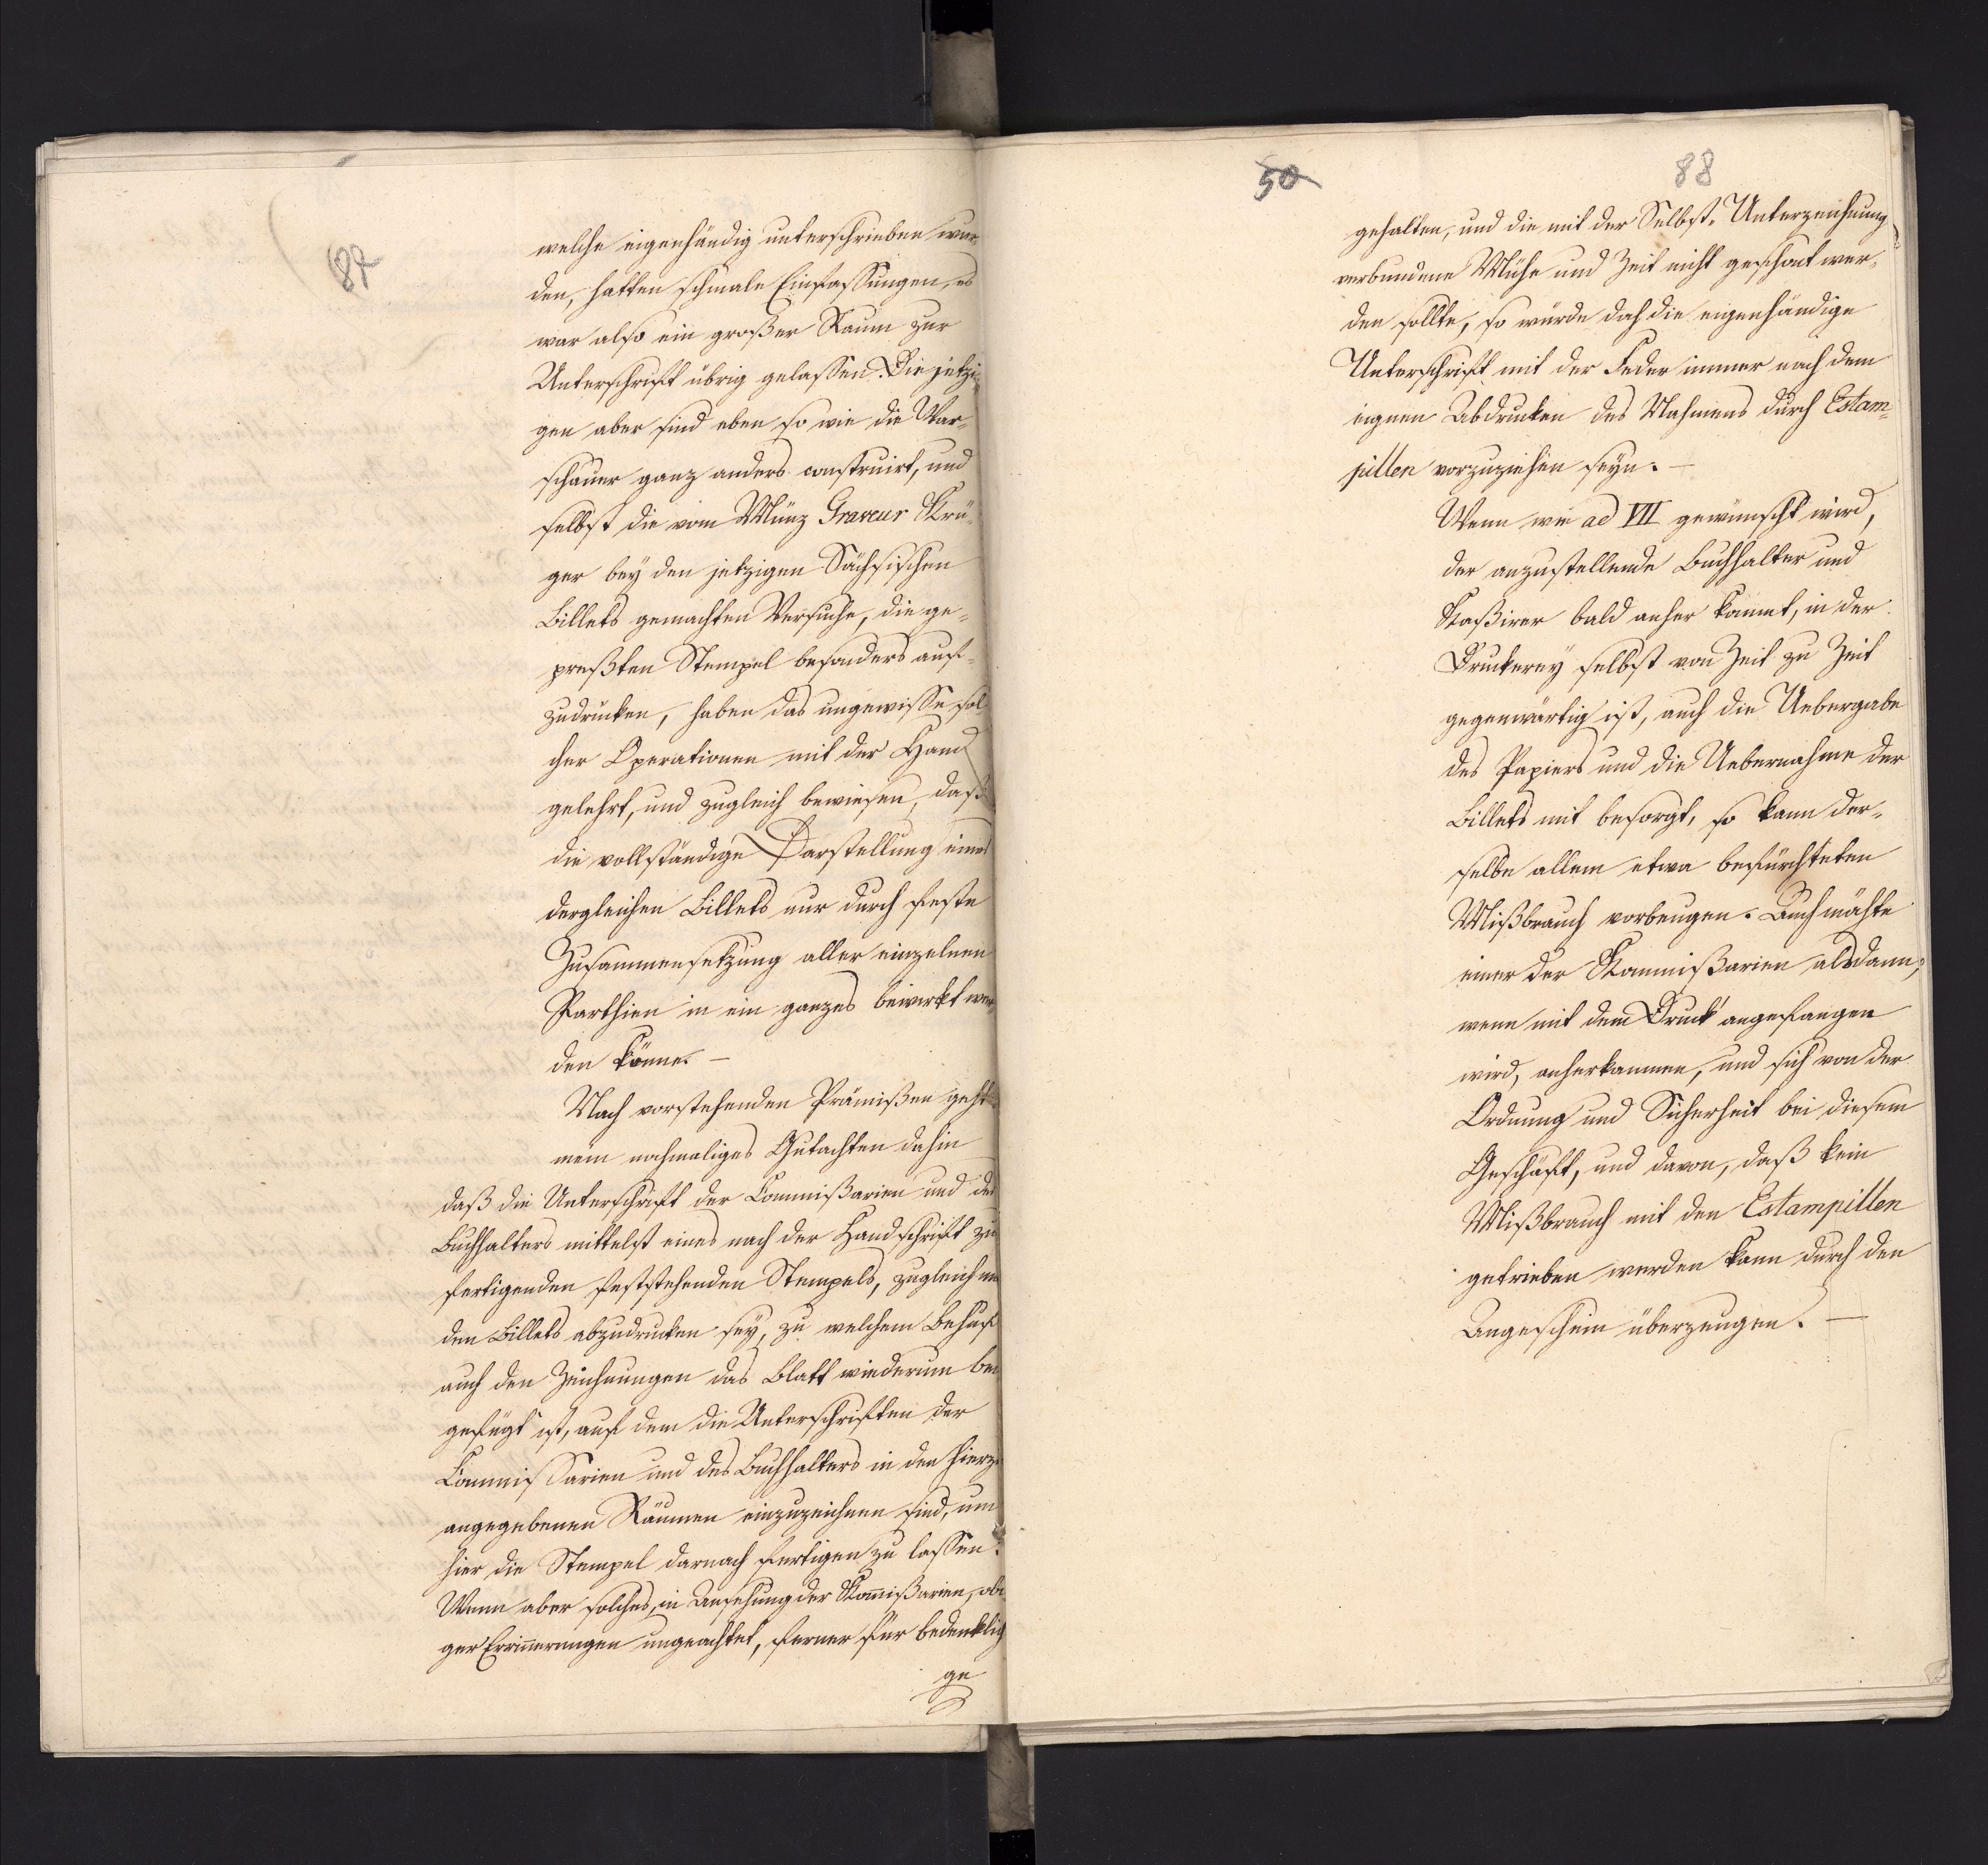 87
welche eigenhändig unterschrieben wur-
den, hatten schmale Einfassungen, es
war also ein großer Raum zur
Unterschrift übrig gelassen. Die jetzi-
gen aber sind eben so wie die War-
schauer ganz anders construirt, und
selbst die vom Münz Graveur Krü-
ger bey den jetzigen Sächsischen
Billets gemachten Versuche, die ge-
preßten Stempel besonders auf-
zudrücken, haben das ungewisse sol
cher Operationen mit der Hand
gelehrt, und zugleich bewiesen, daß
die vollständige Darstellung eines
dergleichen Billets nur durch feste
Zusammensetzung aller einzelnen
Parthien in ein ganzes bewirkt wer-
den könne. —
Nach vorstehenden Prämißen geht
mein nochmaliges Gutachten dahin
daß die Unterschrift der Commißarien und des
Buchhalters mittelst eines nach der Handschrift zu
fertigenden feststehenden Stempels, zugleich mit
den Billets abzudrucken sey, zu welchem Behuf
auch den Zeichnungen das Blatt wiederum bei
gefügt ist, auf dem die Unterschriften der
Commissarien und des Buchhalters in den hierzu
angegebenen Räumen einzuzeichnen sind, um
hier die Stempel darnach fertigen zu lassen.
Wenn aber solches, in Ansehung der Kom̄ißarien, obi
ger Erin̄erungen ungeachtet, ferner für bedenklich
ge
50
88
gehalten, und die mit der Selbst-Unterzeichnung
verbundene Mühe und Zeit nicht geschont wer-
den sollte, so würde doch die eigenhändige
Unterschrift mit der Feder immer noch dem
eignen Abdrucken des Nahmens durch Estam-
pillen vorzuziehen seyn. —
Wenn wie ad VII gewünscht wird,
der anzustellende Buchhalter und
Kaßirer bald anher kommt, in der
Druckerey selbst von Zeit zu Zeit
gegenwärtig ist, auch die Uebergabe
des Papiers und die Uebernahme der
Billets mit besorgt, so kann der-
selbe allem etwa befürchteten
Mißbrauch vorbeugen. Auch möchte
einer der Kommißarien alsdann,
wenn mit dem Druck angefangen
wird, anherkommen, und sich von der
Ordnung und Sicherheit bei diesem
Geschäft, und davon, daß kein
Mißbrauch mit den Estampillen
getrieben werden kann durch den
Augenschein überzeugen. —